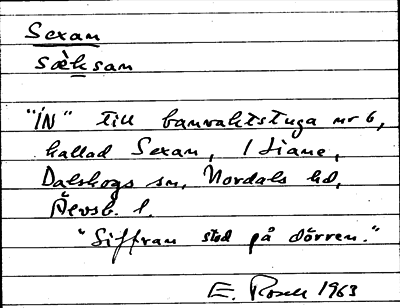 Sexan
sæ̀ksan
"ÍN" till banvaktstuga nr 6,
kallad Sexan, i Liane,
Dalskogs sn, Nordals hd,
Älvsb. l.
"Siffran stod på dörren."
E. 1963